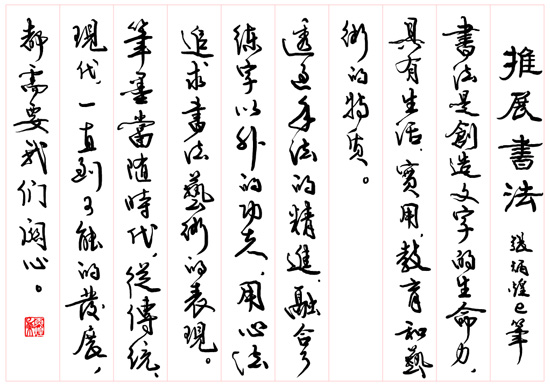 推展書法 張炳煌e筆
書法是創造文字的生命力,
具有生活,實用,教育和藝
術的特质。
透過手法的精進,融合了
練字以外的功夫,用心法
追求書法藝術的表現。
筆墨當隨時代,從傳統,
現代,一直到可能的發展,
都需要我们關心。